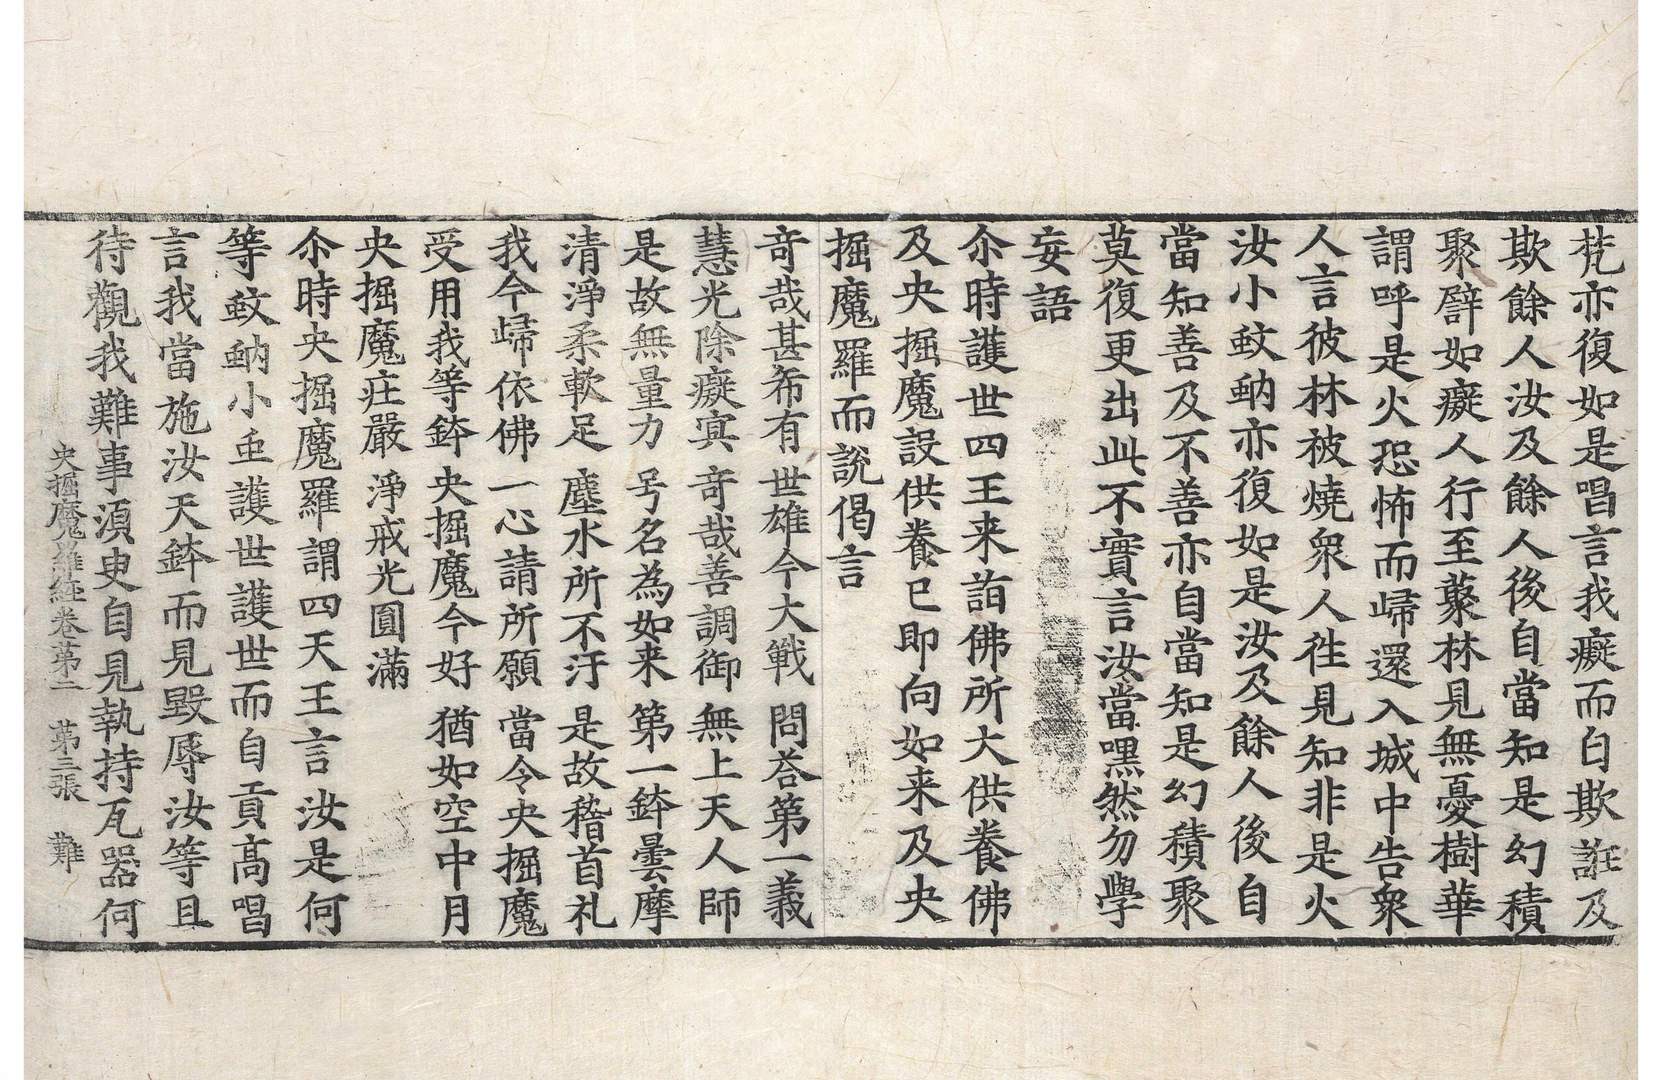 梵亦復如是唱言我癡而自欺誑及
欺餘人汝及餘人後自當知是幻積
聚譬如癡人行至藂林見無憂樹華
謂呼是火恐怖而歸還入城中告衆
人言彼林被燒衆人徃見知非是火
汝小蚊蚋亦復如是汝及餘人後自
當知善及不善亦自當知是幻積聚
莫復更出此不實言汝當嘿然勿學
妄語
尒時護世四王来詣佛所大供養佛
及央掘魔設供養已即向如来及央
掘魔羅而說偈言
奇哉甚希有 世雄今大戰 問荅第一義
慧光除癡冥 奇哉善調御 無上天人師
是故無量力 号名為如来 第一鉢曇摩
清淨柔軟足 塵水所不汙 是故稽首礼
我今歸依佛 一心請所願 當令央掘魔
受用我等鉢 央掘魔今好 猶如空中月
央掘魔庄嚴 淨戒光圓滿
尒時央掘魔羅謂四天王言汝是何
等蚊蚋小虫護世護世而自貢高唱
言我當施汝天鉢而見毀辱汝等且
待觀我難事湏臾自見執持瓦器何
央掘魔羅経卷第二 第三張 難